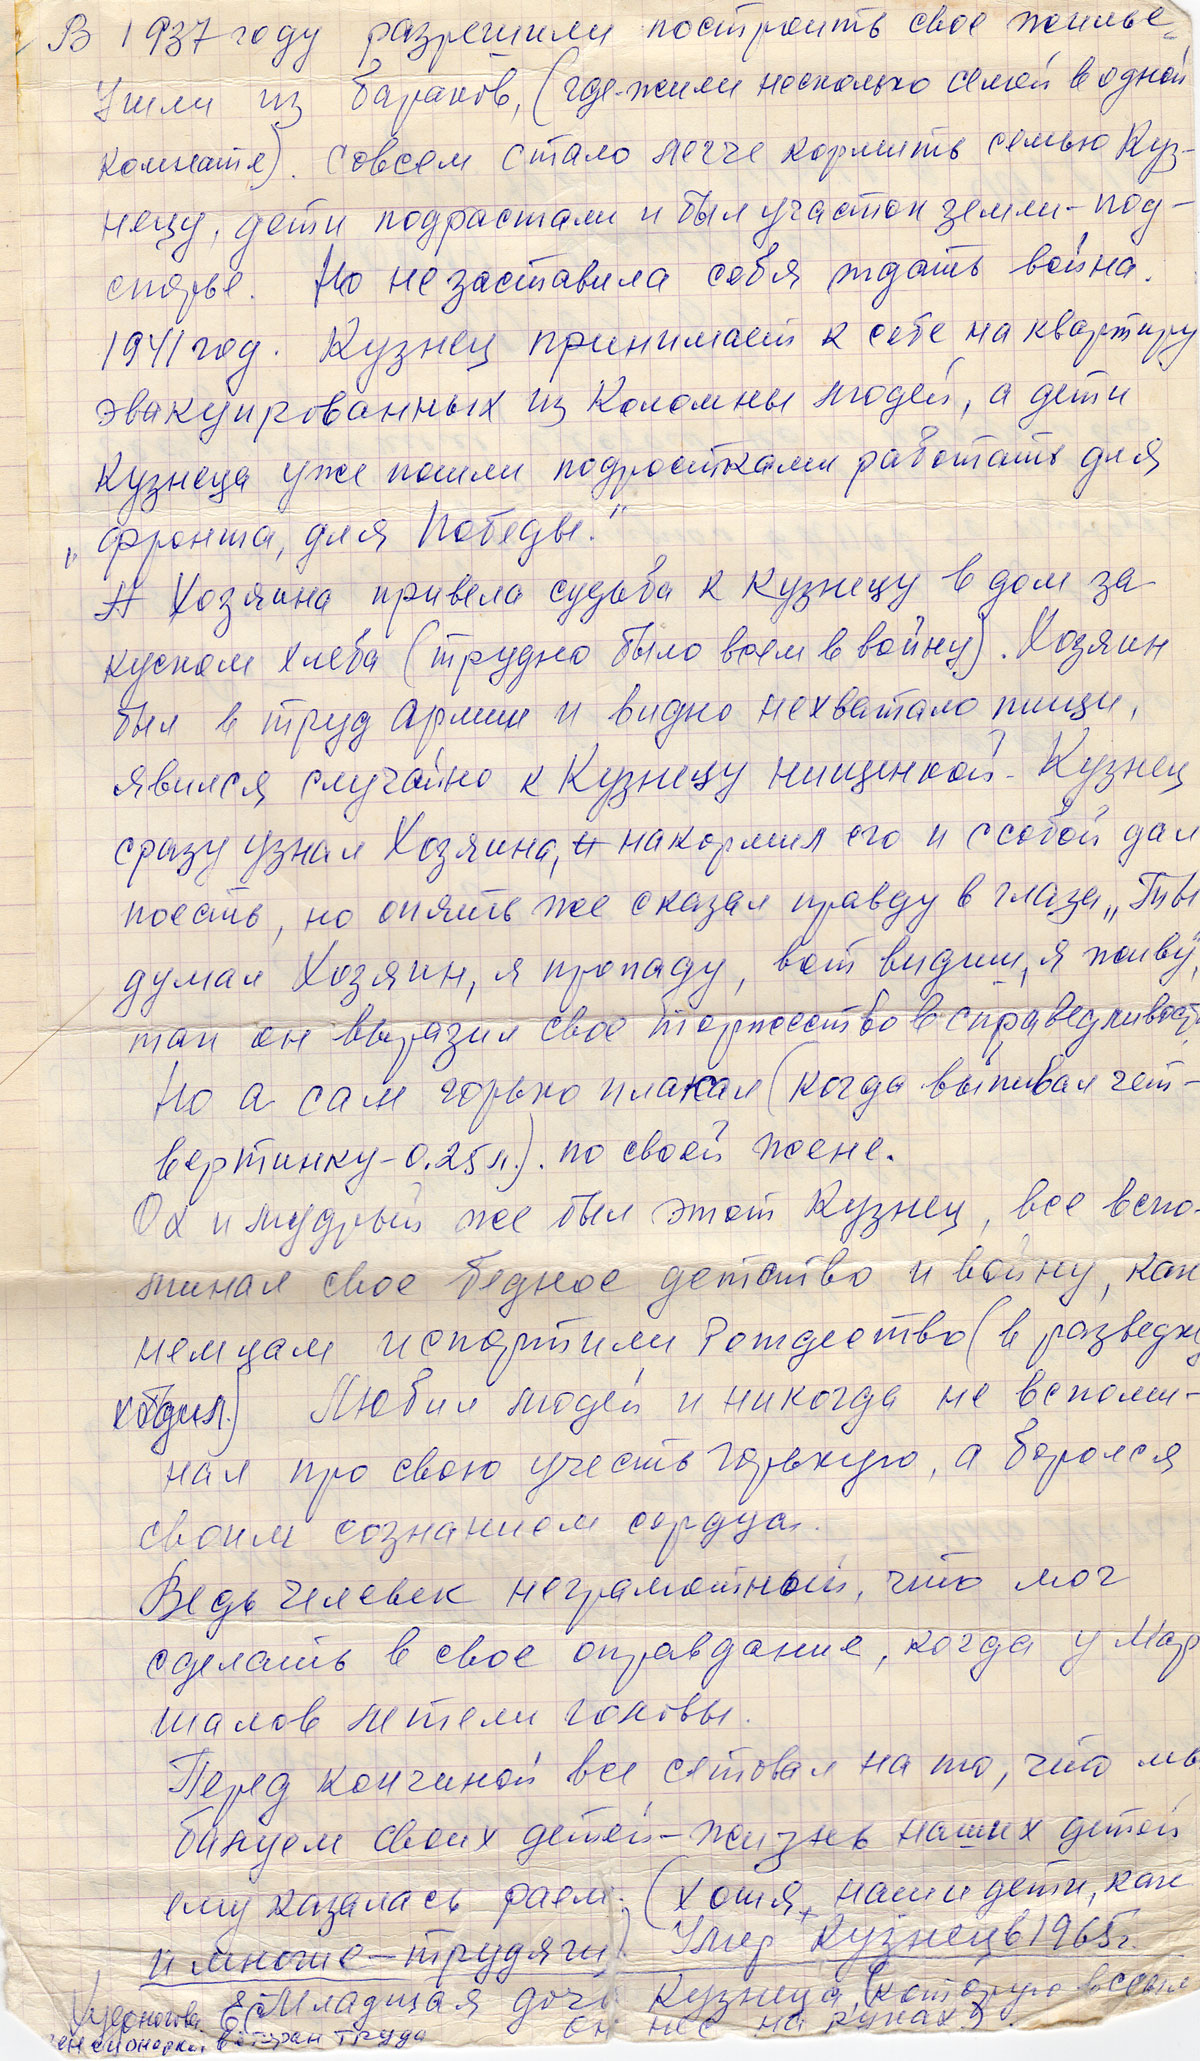 В 1937 году разрешили построить свое жилье
Ушли из бараков, (где жили несколько семей в одной
комнате). Совсем стало легче кормить семью Куз-
нецу, дети подрастали и был участок земли – под-
спорье. Но не заставила себя ждать война.
1941 год. Кузнец принимает к себе на квартиру
эвакуированных из Коломны людей, а дети
Кузнеца уже пошли подростками работать для
„фронта, для Победы."
А Хозяина привела судьба к Кузнецу в дом за
куском хлеба (трудно было всем в войну). Хозяин
был в труд Армии и видно нехватало пищи,
явился случайно к Кузнецу нищенкой – Кузнец
сразу узнал Хозяина, и накормил его и ссобой дал
поесть, но опять же сказал правду в глаза „Ты
думал Хозяин, я пропаду, вот видиш, я живу",
так он выразил свое торжество в справедливость.
Но а сам горько плакал (когда выпивал чет-
вертинку – 0.25 л.). по своей жене.
Ох и мудрый же был этот Кузнец, все вспо-
минал свое бедное детство и войну, как
немцам испортили Рождество (в разведку
ходил.) Любил людей и никогда не вспоми-
нал про свою участь горькую, а боролся
своим сознанием сердца.
Ведь человек неграмотный, что мог
сделать в свое оправдание, когда у Мар
шалов летели головы.
Перед кончиной все сетовал на то, что мы
балуем своих детей – жизнь наших детей
ему казалась раем. (хотя наши дети, как
и многие – трудяги) Умер Кузнец в 1965 г.
Младшая дочь Кузнеца (которую в ссыл
он нес на руках).
ветеран труда